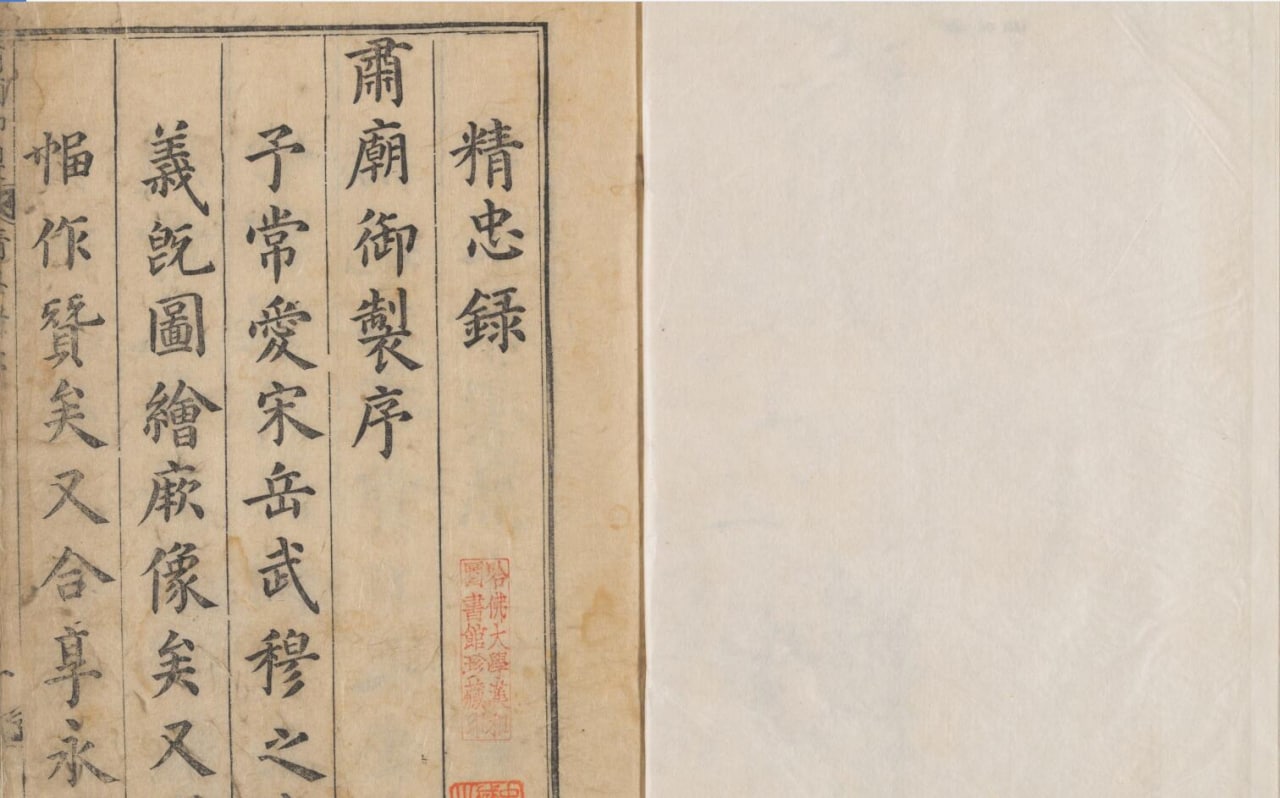 精忠録
肅廟御製序
予常愛宋岳武穆之
義旣圖繪厥像矣又
幅作賛矣又合享永
哈佛大學漢和
圖書館珍藏印